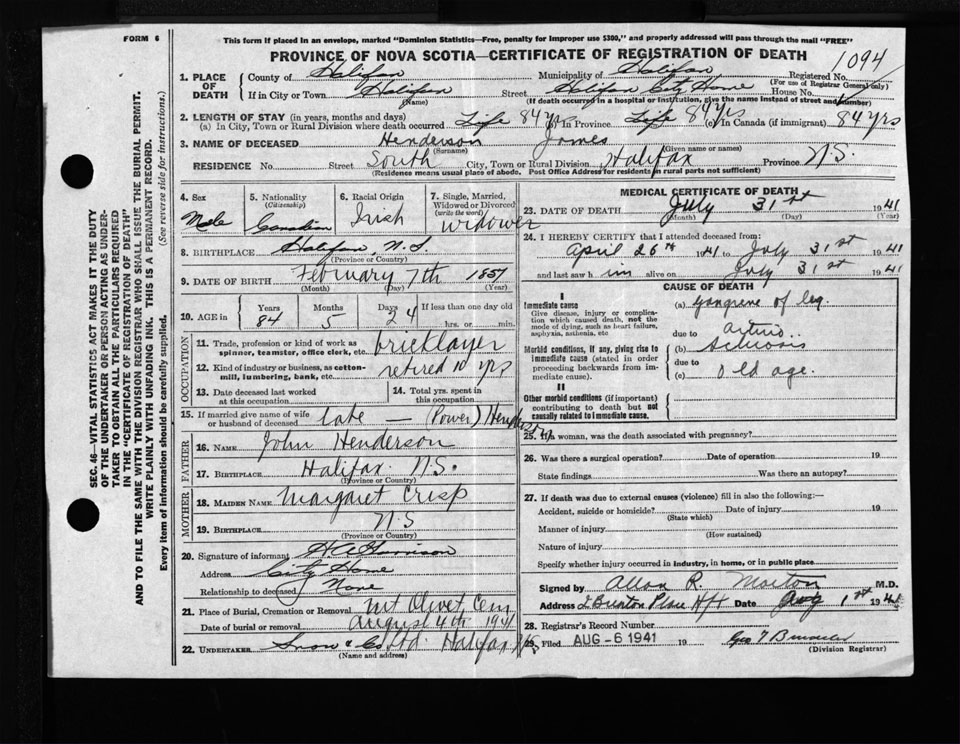 FORM 6
This form if placed in an envelope, marked "Dominion Statistics—Free, penalty for improper use $300," and properly addressed will pass through the mail "FREE"
PROVINCE OF NOVA SCOTIA—CERTIFICATE OF REGISTRATION OF DEATH
1094
1. PLACE OF DEATH
County of Halifax Municipality of Halifax Registered No.
(For use of Registrar General only)
If in City or Town Halifax Street Halifax City Home House No.
(Name) (If death occurred in a hospital or institution, give the name instead of street and number)
2. LENGTH OF STAY (in years, months and days)
(a) In City, Town or Rural Division where death occurred Life 84 yrs (b) In Province Life 84 yrs (c) In Canada (if immigrant) 84 yrs
3. NAME OF DECEASED Henderson James
(Surname) (Given name or names)
RESIDENCE No. Street South City, Town or Rural Division Halifax Province N.S.
(Residence means usual place of abode. Post Office Address for residents in rural parts not sufficient)
4. Sex Male
5. Nationality (Citizenship) Canadian
6. Racial Origin Irish
7. Single, Married, Widowed or Divorced (write the word) widower
8. BIRTHPLACE Halifax, N.S.
(Province or Country)
9. DATE OF BIRTH February 7th 1857
(Month) (Day) (Year)
10. AGE in Years 84 Months 5 Days 24 If less than one day old hrs. or min.
OCCUPATION
11. Trade, profession or kind of work as spinner, teamster, office clerk, etc. bricklayer
12. Kind of industry or business, as cotton-mill, lumbering, bank, etc. retired 10 yrs
13. Date deceased last worked at this occupation
14. Total yrs. spent in this occupation
15. If married give name of wife or husband of deceased late — (Power) Henderson
FATHER
16. NAME John Henderson
17. BIRTHPLACE Halifax N.S.
(Province or Country)
MOTHER
18. MAIDEN NAME Margaret Crisp
19. BIRTHPLACE N S
(Province or Country)
20. Signature of informant H A Harrison
Address City Home
Relationship to deceased None
21. Place of Burial, Cremation or Removal Mt Olivet Cem
Date of burial or removal August 4th 1941
22. UNDERTAKER Snow & Co Ltd Halifax
(Name and address)
MEDICAL CERTIFICATE OF DEATH
23. DATE OF DEATH July 31st 1941
(Month) (Day) (Year)
24. I HEREBY CERTIFY that I attended deceased from:
April 26th 1941 to July 31st 1941
and last saw him alive on July 31st 1941
CAUSE OF DEATH
I
Immediate cause
Give disease, injury or complication which caused death, not the mode of dying, such as heart failure, asphyxia, asthenia, etc
(a) gangrene of leg
due to
Morbid conditions, if any, giving rise to immediate cause (stated in order proceeding backwards from immediate cause).
(b) arterio sclerosis
due to
(c) old age.
II
Other morbid conditions (if important) contributing to death but not causally related to immediate cause.
25. If a woman, was the death associated with pregnancy?
26. Was there a surgical operation? Date of operation 19
State findings Was there an autopsy?
27. If death was due to external causes (violence) fill in also the following:—
Accident, suicide or homicide? Date of injury 19
(State which)
Manner of injury
(How sustained)
Nature of injury
Specify whether injury occurred in industry, in home, or in public place
Signed by Allan R. Morton M.D.
Address 2 Brenton Place Hfx Date Aug 1st 1941
28. Registrar's Record Number
29. Filed AUG - 6 1941 19
(Division Registrar)
SEC. 46—VITAL STATISTICS ACT MAKES IT THE DUTY
OF THE UNDERTAKER OR PERSON ACTING AS UNDER-
TAKER TO OBTAIN ALL THE PARTICULARS REQUIRED
IN THE "CERTIFICATE OF REGISTRATION OF DEATH"
AND TO FILE THE SAME WITH THE DIVISION REGISTRAR WHO SHALL ISSUE THE BURIAL PERMIT.
WRITE PLAINLY WITH UNFADING INK. THIS IS A PERMANENT RECORD.
Every item of information should be carefully supplied. (See reverse side for instructions.)